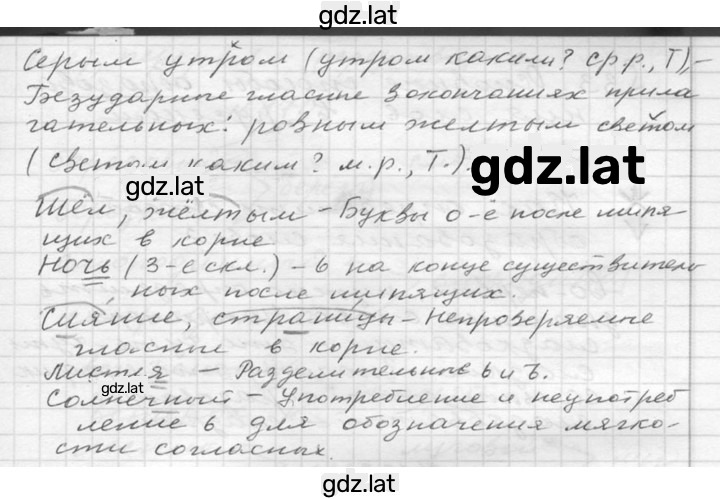 gdz.lat
Серым утром (утром каким? ср.р., Т),-
Безударные гласные в окончаниях прила
гательных: ровным желтым светом
(светом каким? м.р., Т.).
gdz.lat
gdz.lat
Шёл, жёлтым - Буквы о-ё после шипя-
щих в корне
Ночь (3-е скл.) - ь на конце существитель
ных после шипящих.
Сияние, страницы - Непроверяемые
гласные в корне.
Листья - Разделительные ь и ъ.
gdz.lat
Солнечный - Употребление и неупотреб
ление ь для обозначения мягко-
сти согласных.
gdz.lat